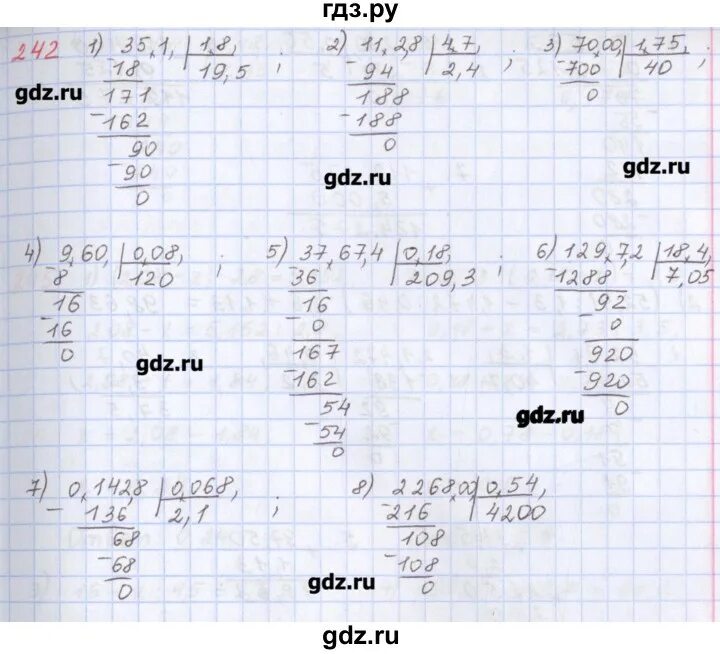 гдз.ру
242 1) 35,1, | 1,8, ; 2) 11,2,8 | 4,7, ; 3) 70,00, | 1,75, ;
18 19,5 94 2,4 -700 40
171 188 0
-162 -188
90 0
-90
0
gdz.ru
gdz.ru
gdz.ru
4) 9,60, | 0,08, ; 5) 37,67,4 | 0,18, ; 6) 129,7,2 | 18,4,
-8 120 -36 209,3 -1288 7,05
16 16 92
-16 -0 -0
0 167 920
-162 -920
54 0
-54
0
gdz.ru
gdz.ru
7) 0,142,8 | 0,068, ; 8) 2268,00 | 0,54,
-136 2,1 -216 4200
68 108
-68 -108
0 0
gdz.ru
gdz.ru